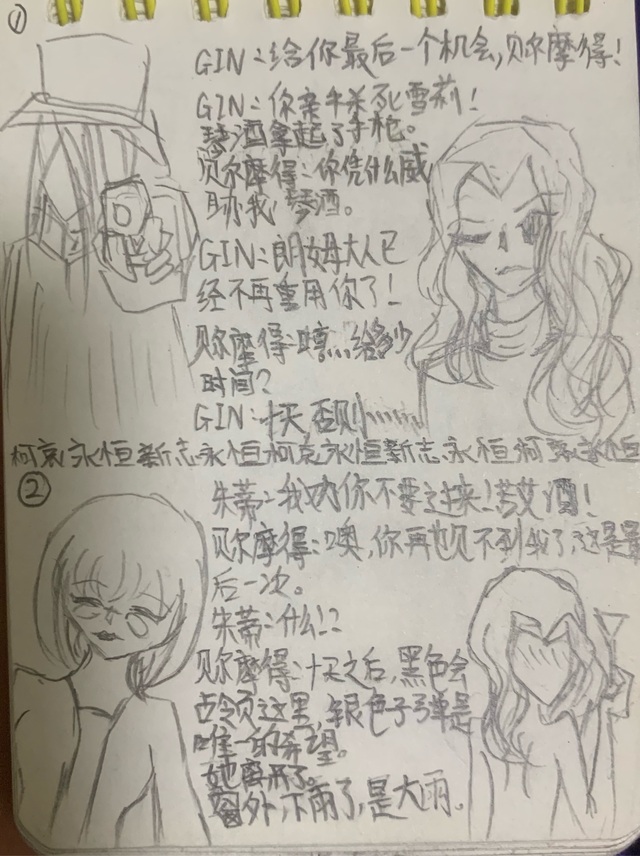 ①
GIN：给你最后一个机会，贝尔摩得！
GIN：你亲手杀死雪莉！
琴酒拿起了手枪。
贝尔摩得：你凭什么威
胁我，琴酒。
GIN：朗姆大人已
经不再重用你了！
贝尔摩得：嘁…给多少
时间？
GIN：十天，否则……
柯哀永恒新志永恒柯哀永恒新志永恒柯哀永恒
②
朱蒂：我劝你不要过来！苦艾酒！
贝尔摩得：噢，你再也见不到我了，这是最
后一次。
朱蒂：什么！？
贝尔摩得：十天之后，黑色会
占领这里，银色子弹是
唯一的希望。
她离开了。
窗外，下雨了，是大雨。